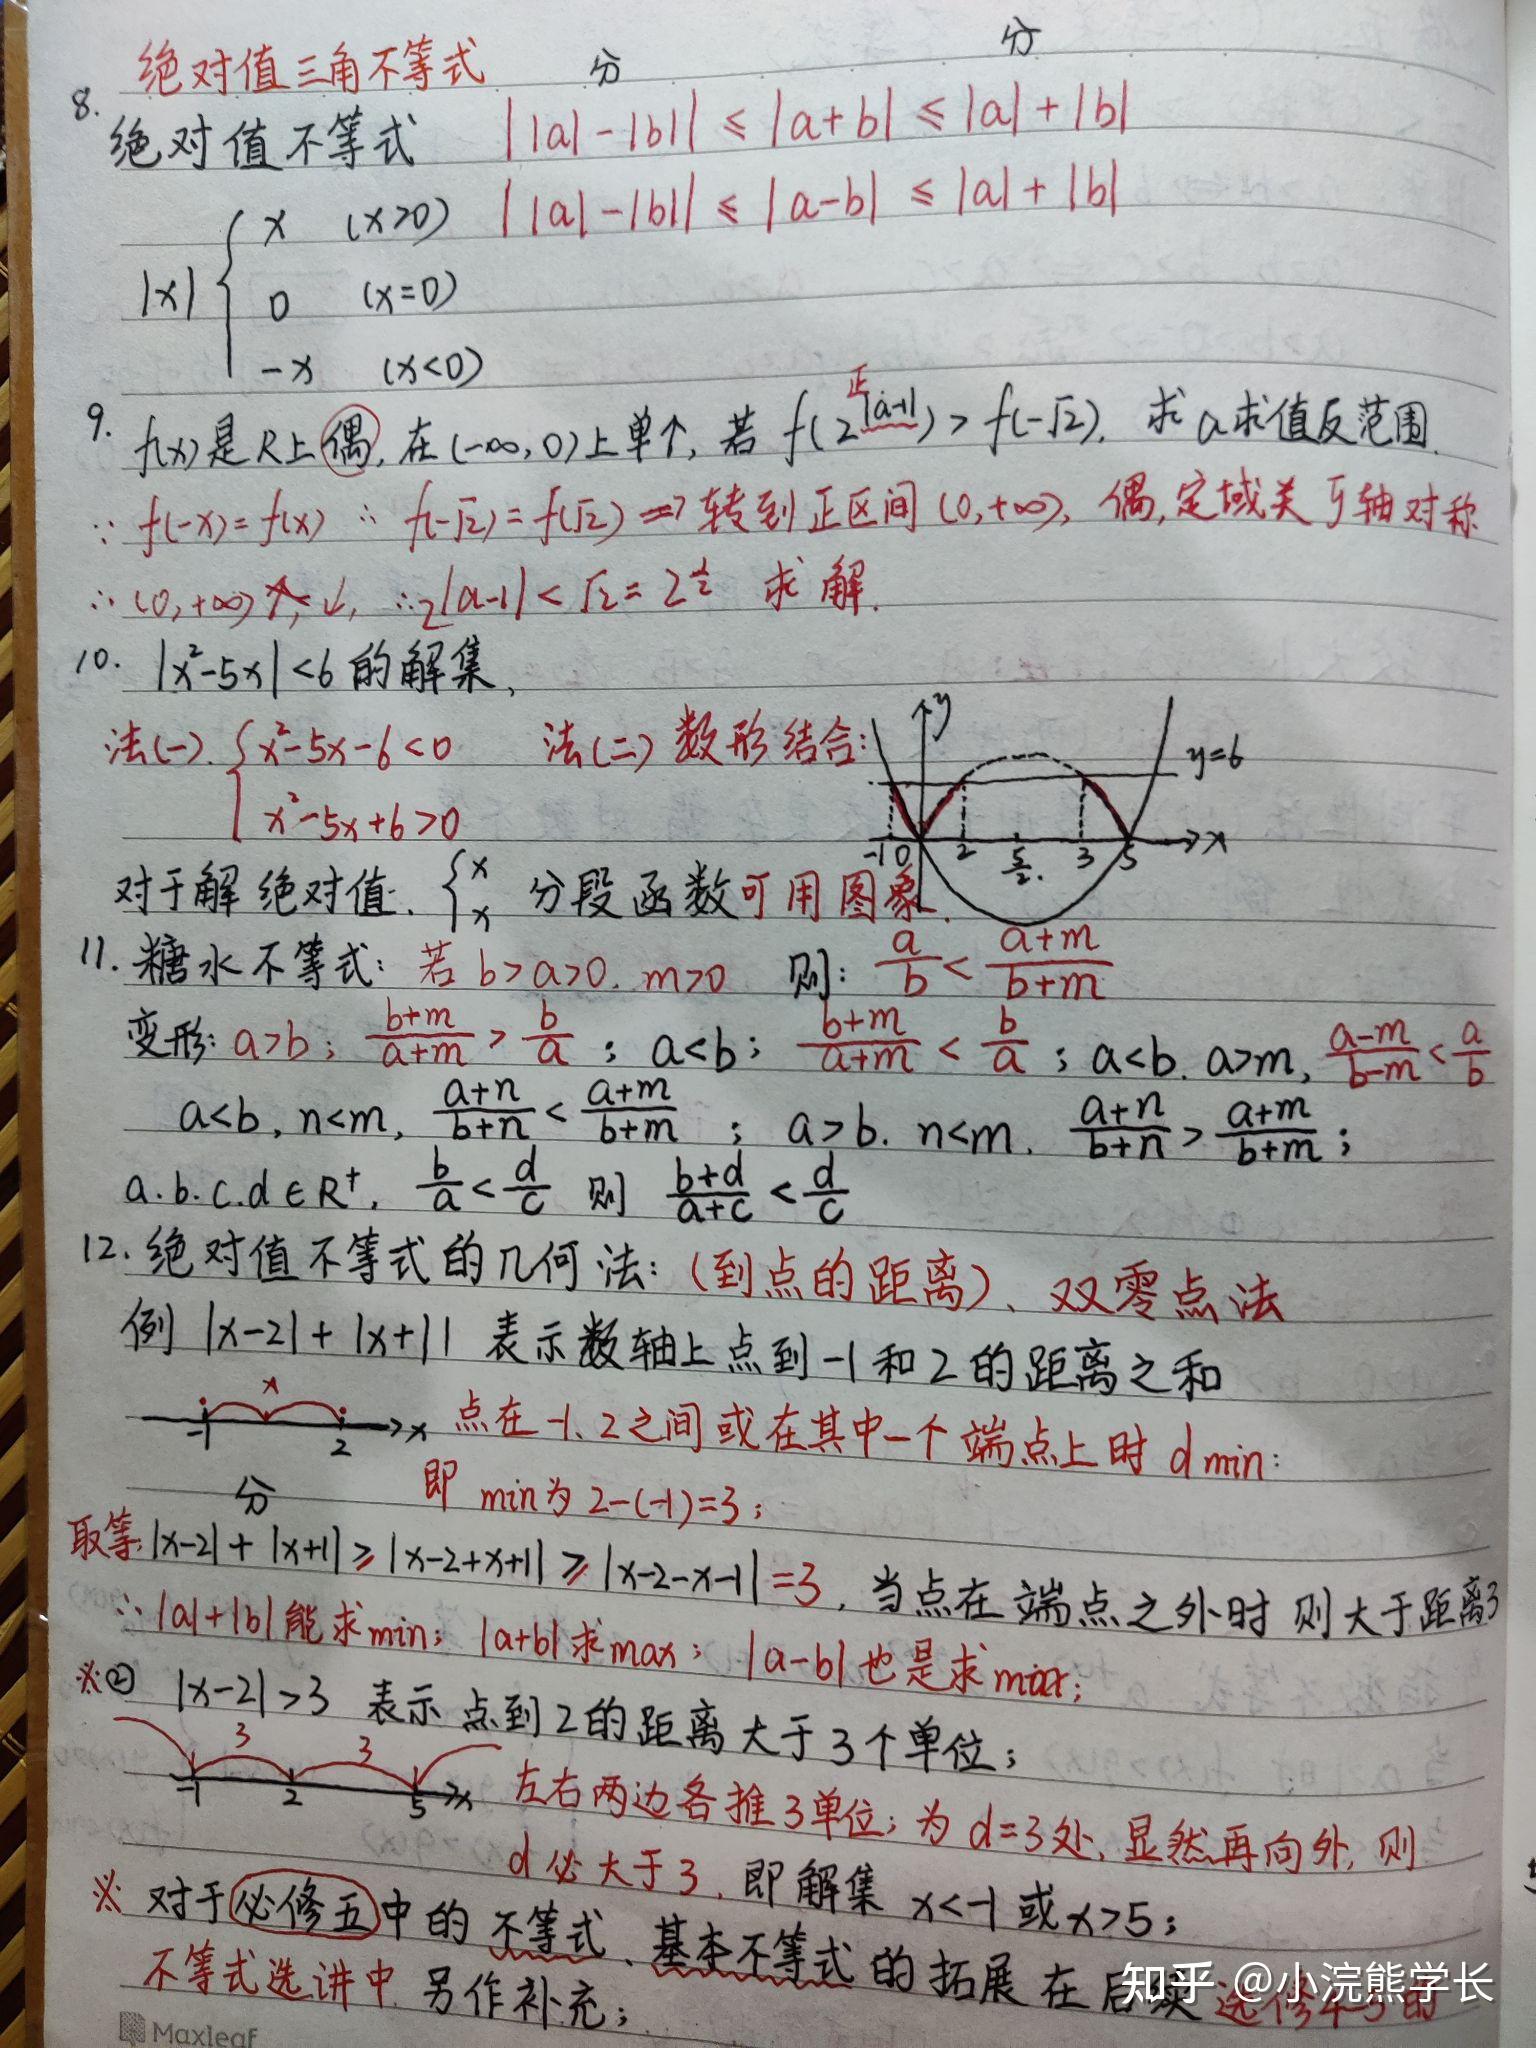 绝对值三角不等式 分 分
8. 绝对值不等式 ||a|-|b|| ≤ |a+b| ≤ |a|+|b|
||a|-|b|| ≤ |a-b| ≤ |a|+|b|
|x| { x (x>0)
0 (x=0)
-x (x<0)
9. f(x)是R上偶,在(-∞,0)上单↑,若 f(2^|a-1|)>f(-√2),求a求值反范围.
正
∵ f(-x)=f(x) ∴ f(-√2)=f(√2) ⇒转到正区间(0,+∞),偶,定域关于y轴对称
∴(0,+∞) ↓, ∴2^|a-1|<√2=2^½ 求解.
10. |x²-5x|<6的解集,
法(一). { x²-5x-6<0 法(二)数形结合:
x²-5x+6>0
y
y=6
-1 0 2 5/2 3 5 x
对于解绝对值. { x x 分段函数可用图象.
11. 糖水不等式: 若b>a>0. m>0 则: a/b < (a+m)/(b+m)
变形: a>b; (b+m)/(a+m) > b/a ; a<b; (b+m)/(a+m) < b/a ; a<b. a>m, (a-m)/(b-m) < a/b
a<b, n<m, (a+n)/(b+n) < (a+m)/(b+m) ; a>b. n<m. (a+n)/(b+n) > (a+m)/(b+m) ;
a.b.c.d∈R⁺, b/a < d/c 则 (b+d)/(a+c) < d/c
12. 绝对值不等式的几何法: (到点的距离)、双零点法
例 |x-2|+|x+1| 表示数轴上点到-1和2的距离之和
x
-1 2 x 点在-1、2之间或在其中一个端点上时 d min:
分 即 min为 2-(-1)=3;
取等: |x-2|+|x+1| ≥ |x-2+x+1| ≥ |x-2-x-1| =3, 当点在端点之外时则大于距离3
∴ |a|+|b|能求min; |a+b|求max; |a-b|也是求max;
※② |x-2|>3 表示点到2的距离大于3个单位;
3 3
-1 2 5 x 左右两边各推3单位;为d=3处,显然再向外,则
d必大于3,即解集 x<-1或x>5;
※ 对于必修五中的不等式、基本不等式的拓展在后续选修4-5的
不等式选讲中.另作补充;
知乎 @小浣熊学长
Maxleaf